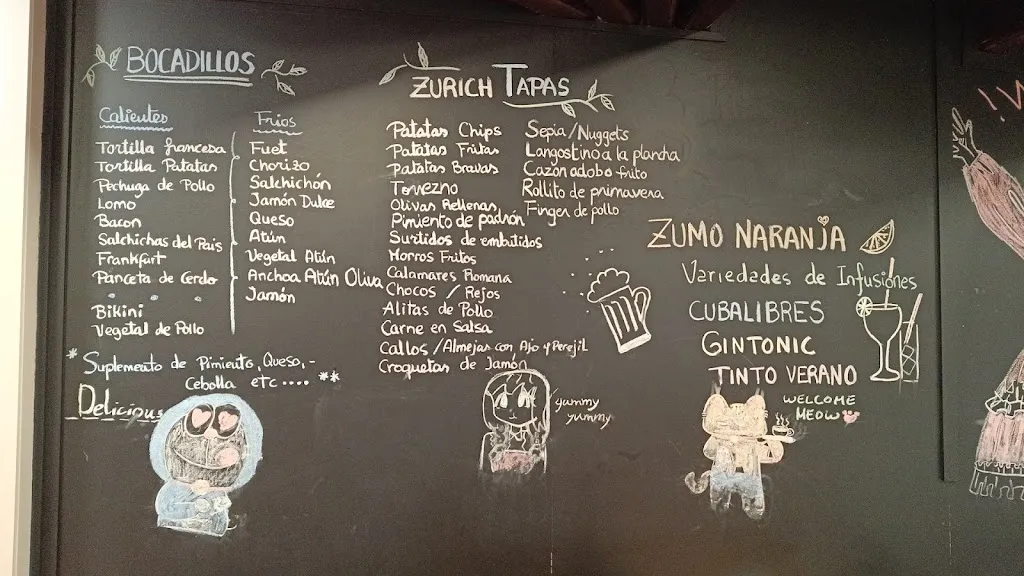 BOCADILLOS
Calientes
Tortilla francesa
Tortilla Patatas
Pechuga de Pollo
Lomo
Bacon
Salchichas del País
Frankfurt
Panceta de Cerdo
" " " "
Bikini
Vegetal de Pollo
Frios
Fuet
Chorizo
Salchichón
Jamón Dulce
Queso
Atún
Vegetal Atún
Anchoa Atún Oliva
Jamón
* Suplemento de Pimiento, Queso, -
Cebolla etc.... **
Delicious
ZURICH TAPAS
Patatas Chips
Patatas Fritas
Patatas Bravas
Torrezno
Olivas Rellenas
Pimiento de padrón
Surtidos de embitidos
Morros Fritos
Calamares Romana
Chocos / Rejos
Alitas de Pollo
Carne en Salsa
Callos / Almejas con Ajo y Perejil
Croquetas de Jamón
Sepia / Nuggets
Langostino a la plancha
Cazón adobo frito
Rollito de primavera
Finger de pollo
yummy
yummy
ZUMO NARANJA
Variedades de Infusiones
CUBALIBRES
GINTONIC
TINTO VERANO
WELCOME
MEOW